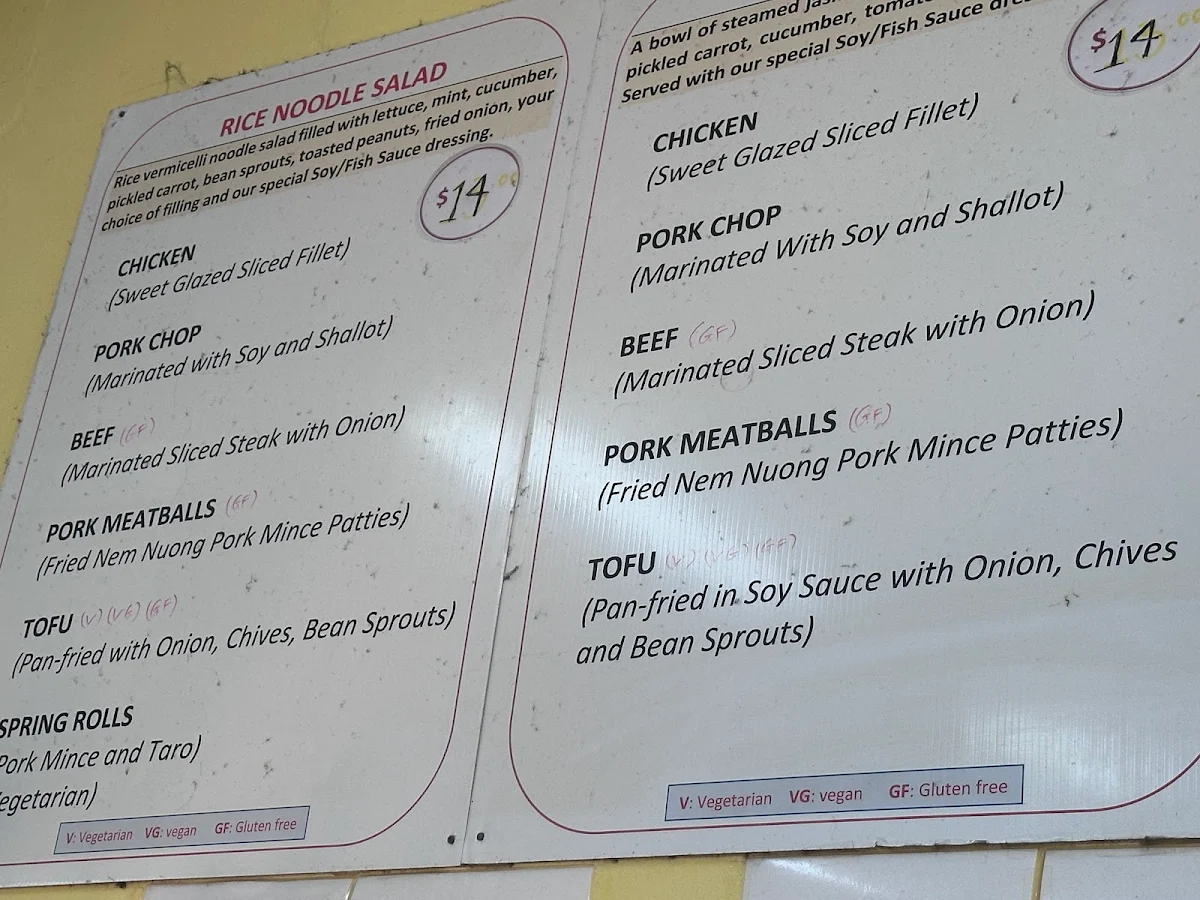 RICE NOODLE SALAD
Rice vermicelli noodle salad filled with lettuce, mint, cucumber,
pickled carrot, bean sprouts, toasted peanuts, fried onion, your
choice of filling and our special Soy/Fish Sauce dressing.
$14.00
CHICKEN
(Sweet Glazed Sliced Fillet)
PORK CHOP
(Marinated with Soy and Shallot)
BEEF (GF)
(Marinated Sliced Steak with Onion)
PORK MEATBALLS (GF)
(Fried Nem Nuong Pork Mince Patties)
TOFU (V) (VG) (GF)
(Pan-fried with Onion, Chives, Bean Sprouts)
SPRING ROLLS
Pork Mince and Taro)
egetarian)
V: Vegetarian VG: vegan GF: Gluten free
A bowl of steamed
pickled carrot, cucumber,
Served with our special Soy/Fish Sauce
$14.00
CHICKEN
(Sweet Glazed Sliced Fillet)
PORK CHOP
(Marinated With Soy and Shallot)
BEEF (GF)
(Marinated Sliced Steak with Onion)
PORK MEATBALLS (GF)
(Fried Nem Nuong Pork Mince Patties)
TOFU (V) (VG) (GF)
(Pan-fried in Soy Sauce with Onion, Chives
and Bean Sprouts)
V: Vegetarian VG: vegan GF: Gluten free